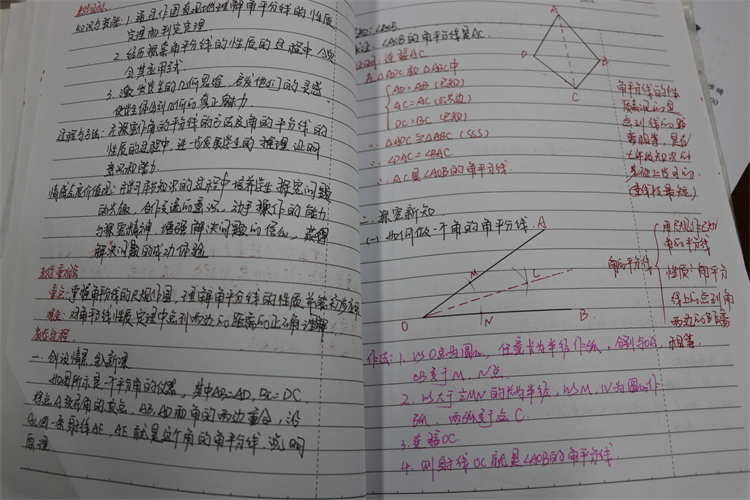 教学目标:
知识与技能: 1. 通过作图直观地理解角平分线的性质
定理和判定定理
2. 经历探索角平分线的性质的过程中
会其应用
3. 激发学生的几何思维, 启发他们的灵感
使学生体会到几何的真正魅力.
过程与方法: 在探索作角的平分线的方法及角的平分线的
性质的过程中, 进一步发展学生的推理证明
意识和能力.
情感态度价值观: 在学习知识的过程中培养学生探究问题
的兴趣, 合作交流的意识, 动手操作的能力
与探索精神, 增强解决问题的信心, 获得
解决问题的成功体验
教学重难点
重点: 掌握角平分线的尺规作图, 理解角平分线的性质并能初步运用
难点: 对角平分线性质定理中点到两边的距离的正确理解
教学过程
一. 创设情景, 导入新课
如图所示是一个平分角的仪器, 其中AB=AD, BC=DC.
将点A放在角的顶点, AB, AD和角的两边重合, 沿
AC画一条射线AE, AE就是这个角的角平分线. 说明
原理
∠AOB
∠AOB的角平分线是AC.
证明: 连接AC
在△ADC和△ABC中
AD=AB (已知)
AC=AC (公共边)
DC=BC (已知)
∴ △ADC≌△ABC (SSS)
∴ ∠DAC=∠BAC
∴ AC是∠AOB的角平分线.
A
D
B
C
角平分线的性
点到线的距
离相等, 是在
七年级知识的
(垂线段最短)
二. 探究新知
(一) 如何做一个角的角平分线.
A
M
C
O
N
B
角的平分线
用尺规作已知
角的平分线
性质: 角平分
线上的点到角
两边的距离
相等.
作法: 1. 以O点为圆心, 任意长为半径作弧, 分别与OA
OB交于M, N点.
2. 以大于½MN的长为半径, 以M, N为圆心作
弧, 两弧交于点C.
3. 连接OC.
4. 则射线OC就是∠AOB的角平分线.